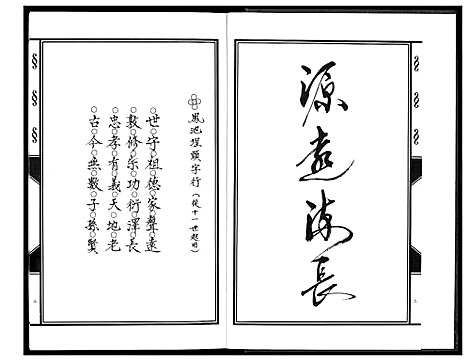 源遠流長
鳳池埕頭字行（從十一世起用）
世守祖德家聲遠
敦修宗功衍澤長
忠孝有義天地老
古今無數子孫賢